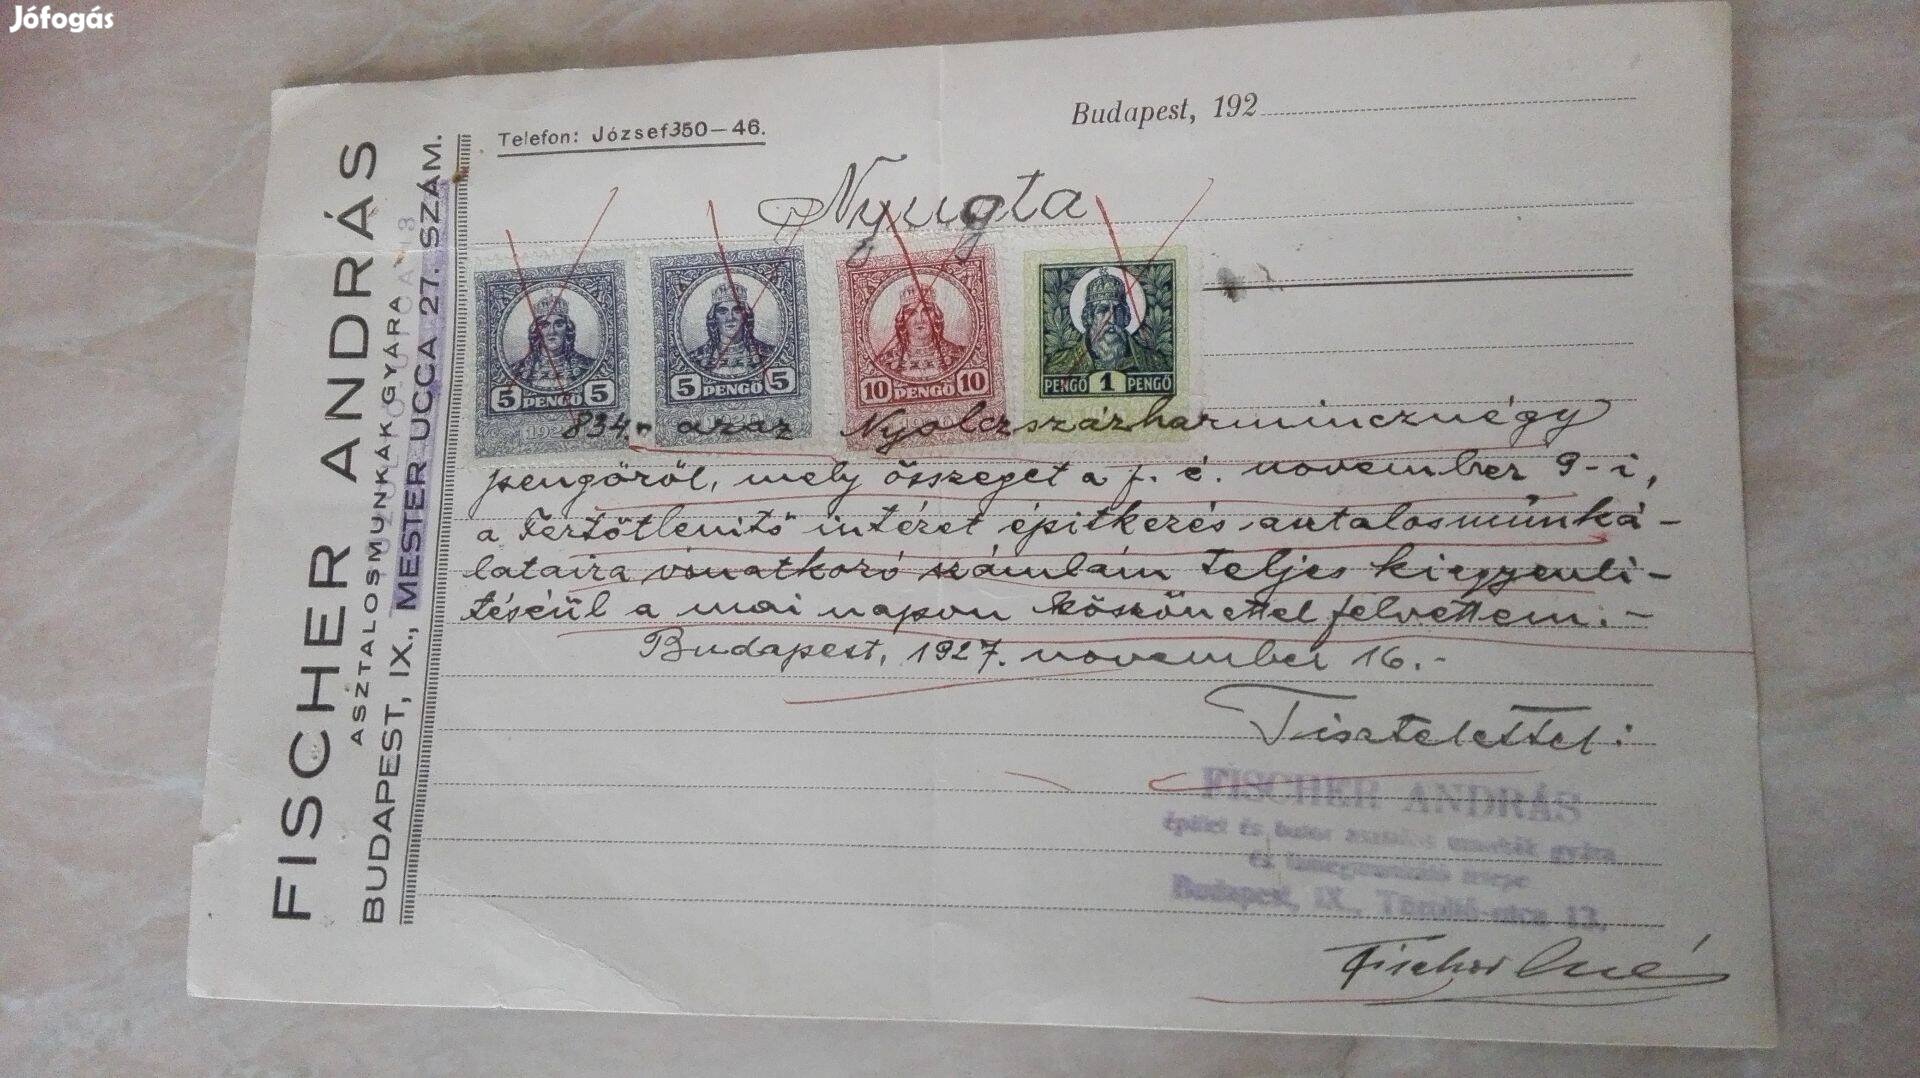 Jófogás
FISCHER ANDRÁS
ASZTALOSMUNKÁK GYÁRA
BUDAPEST, IX., MESTER UCCA 27. SZÁM.
Telefon: József 350—46.
Budapest, 192
Nyugta
5 PENGŐ 5
5 PENGŐ 5
10 PENGŐ 10
PENGŐ 1 PENGŐ
834.- azaz Nyolczszázharmincznégy
pengőről, mely összeget a f. é. november 9-i,
a Fertőtlenitő intézet épitkezés asztalosmunká-
lataira vonatkozó számlám teljes kiegyenli-
téséül a mai napon köszönettel felvettem.-
Budapest, 1927. november 16.-
Tisztelettel:
FISCHER ANDRÁS
épület és butor asztalos munkák gyára
és
Budapest, IX., utca 13.
Fischer